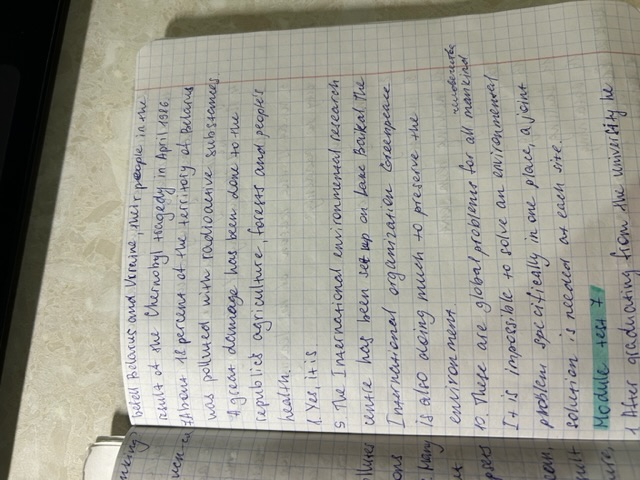 befell Belarus and Ukraine, their people in the
result of the Chernobyl tragedy in April 1986.
7. About 18 percent of the territory of Belarus
was polluted with radioactive substances
A great damage has been done to the
republic's agriculture, forests and people's
health.
8. Yes, it is
9. The International environmental research
centre has been set up on Lake Baikal. The
International organization Greenpeace
is also doing much to preserve the
environment
10. These are global problems for all mankind
It is impossible to solve an environmental
problem specifically in one place, a joint
solution is needed at each site.
Module test 7
1. After graduating from the university he